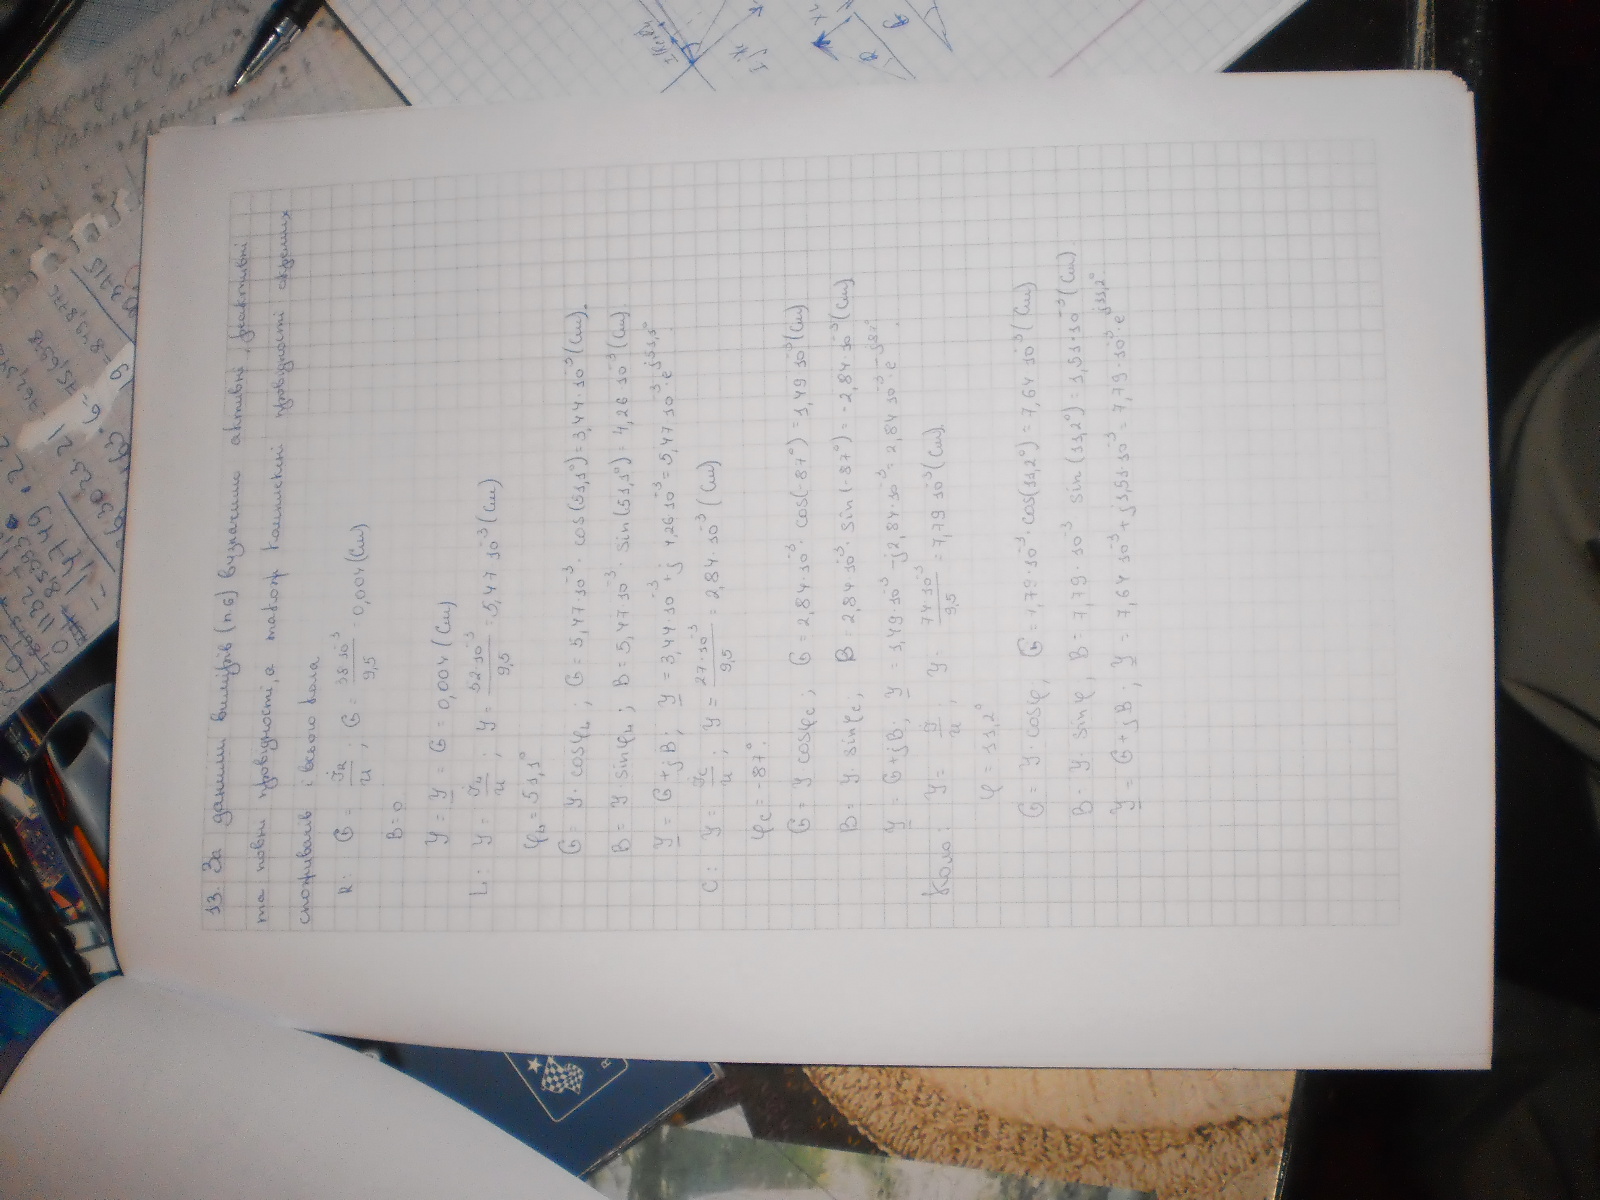 13. За даними вимірів (п 6) визначимо активні, реактивні
та повні провідності, а також комплексні провідності окремих
споживачів і всього кола
R: G = Iʀ/u ; G = 38·10⁻³/9,5 = 0,004 (См)
B = 0
Y = Y = G = 0,004 (См)
L: Y = Iк/u ; Y = 52·10⁻³/9,5 = 5,47 10⁻³ (См)
φₖ = 51,1°
G = Y · cosφₖ ; G = 5,47 10⁻³ · cos(51,1°) = 3,44 · 10⁻³ (См).
B = Y · sinφₖ ; B = 5,47 · 10⁻³ · sin(51,1°) = 4,26 10⁻³ (См).
Y = G + jB ; Y = 3,44 · 10⁻³ + j 4,26 10⁻³ = 5,47 10⁻³ · e^j51,1°
C: Y = Ic/u ; Y = 27·10⁻³/9,5 = 2,84 · 10⁻³ (См)
φc = -87°.
G = Y cosφc ; G = 2,84 · 10⁻³ · cos(-87°) = 1,49 10⁻³ (См)
B = Y · sinφc ; B = 2,84 10⁻³ · sin(-87°) = -2,84 · 10⁻³ (См)
Y = G + jB ; Y = 1,49 · 10⁻³ - j2,84 · 10⁻³ = 2,84 10⁻³ · e^-j87°.
Коло: Y = I/u ; Y = 74 10⁻³/9,5 = 7,79 10⁻³ (См).
φ = 11,2°
G = Y · cosφ ; G = 7,79 · 10⁻³ · cos(11,2°) = 7,64 10⁻³ (См)
B = Y · sinφ ; B = 7,79 · 10⁻³ sin (11,2°) = 1,51 · 10⁻³ (См)
Y = G + jB ; Y = 7,64 10⁻³ + j1,51·10⁻³ = 7,79 · 10⁻³ · e^j11,2°